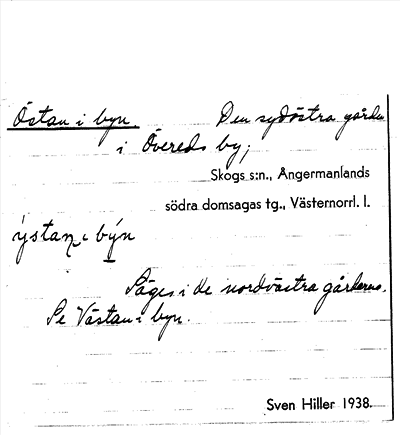 Östan i byn. Den sydöstra gården
i Övereds by;
Skogs s:n., Ångermanlands
södra domsagas tg., Västernorrl. l.
ýstan i býn
Säges i de nordvästra gårdarna.
Se Västan i byn.
Sven Hiller 1938.